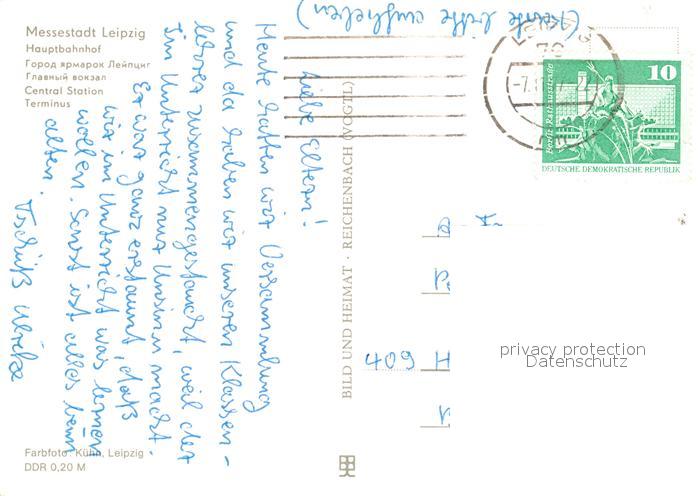 Messestadt Leipzig
Hauptbahnhof
Город ярмарок Лейпциг
Главный вокзал
Central Station
Terminus
(Karte bitte aufheben)
Liebe Eltern!
Heute hatten wir Versammlung
und da haben wir unseren Klassen-
lehrer zusammengestaucht, weil der
im Unterricht nur Unsinn macht.
Er war ganz erstaunt, daß
wir im Unterricht was lernen
wollen. Sonst ist alles beim
alten.
Tschüß Ulrike
BILD UND HEIMAT · REICHENBACH (VOGTL)
10
Berlin, Rathausstraße
DEUTSCHE DEMOKRATISCHE REPUBLIK
409 H
privacy protection
Datenschutz
Farbfoto: Kühn, Leipzig
DDR 0,20 M